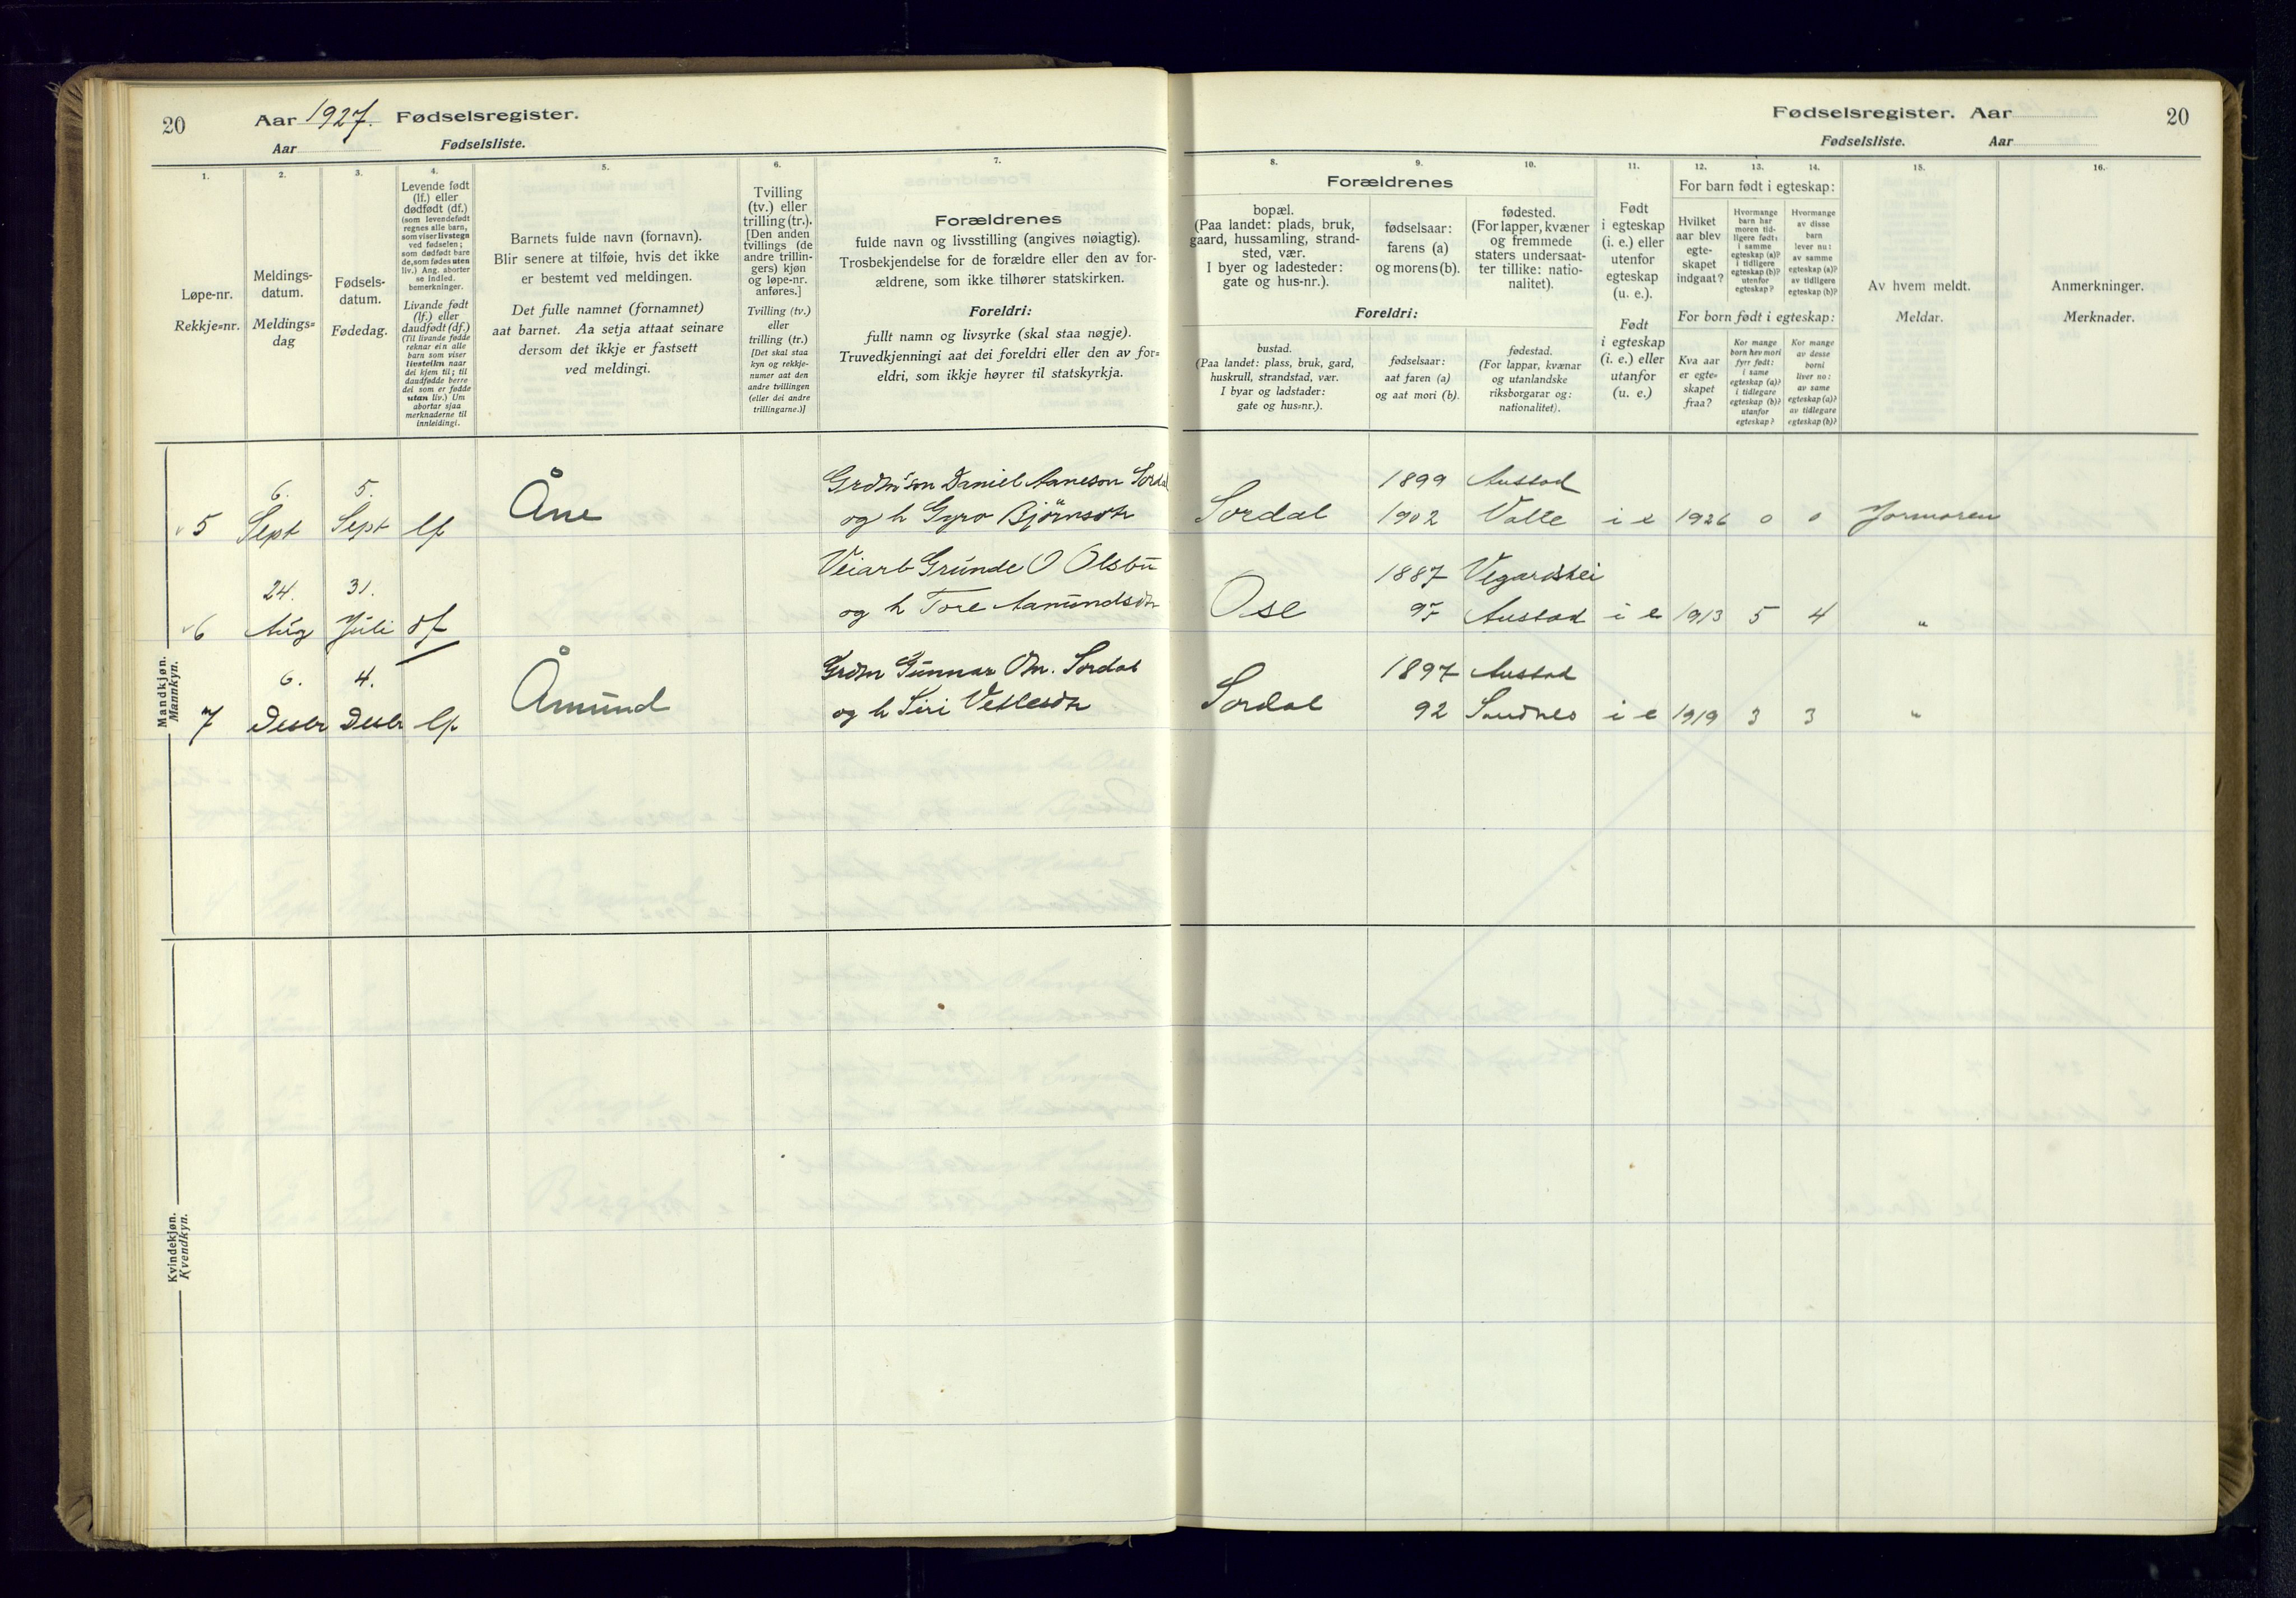 20
Aar 1927. Fødselsregister.
Aar Fødselsliste.
Fødselsregister. Aar
20
Fødselsliste. Aar
1.
Løpe-nr.
Rekkje=nr.
2.
Meldings-
datum.
Meldings=
dag
3.
Fødsels-
datum.
Fødedag.
4.
Levende født
(lf.) eller
dødfødt (df.)
(som levendefødt
regnes alle barn,
som viser livstegn
ved fødselen;
som dødfødt bare
de, som fødes uten
liv.) Ang. aborter
se indled.
bemerkninger.
Livande født
(lf.) eller
daudfødt (df.)
(Til livande fødde
reknar ein alle
barn som viser
livsteikn naar
dei kjem til; til
daudfødde berre
dei som er fødde
utan liv.) Um
abortar sjaa
merknaderne til
innleidingi.
5.
Barnets fulde navn (fornavn).
Blir senere at tilføie, hvis det ikke
er bestemt ved meldingen.
Det fulle namnet (fornamnet)
aat barnet. Aa setja attaat seinare
dersom det ikkje er fastsett
ved meldingi.
6.
Tvilling
(tv.) eller
trilling (tr.).
[Den anden
tvillings (de
andre trillin-
gers) kjøn
og løpe-nr.
anføres.]
Tvilling (tv.)
eller
trilling (tr.)
[Det skal staa
kyn og rekkje-
numer aat den
andre tvillingen
(eller dei andre
trillingarne.)]
7.
Forældrenes
fulde navn og livsstilling (angives nøiagtig).
Trosbekjendelse for de forældre eller den av for-
ældrene, som ikke tilhører statskirken.
Foreldri:
fullt namn og livsyrke (skal staa nøgje).
Truvedkjenningi aat dei foreldri eller den av for=
eldri, som ikkje høyrer til statskyrkja.
Forældrenes
8.
bopæl.
(Paa landet: plads, bruk,
gaard, hussamling, strand-
sted, vær.
I byer og ladesteder:
gate og hus-nr.).
9.
fødselsaar:
farens (a)
og morens (b).
10.
fødested.
(For lapper, kvæner
og fremmede
staters undersaat-
ter tillike: natio-
nalitet).
Foreldri:
bustad.
(Paa landet: plass, bruk, gard,
huskrull, strandstad, vær.
I byar og ladstader:
gate og hus=nr.).
fødselsaar:
aat faren (a)
og aat mori (b).
fødestad.
(For lappar, kvænar
og utanlandske
riksborgarar og:
nationalitet).
11.
Født
i egteskap
(i. e.) eller
utenfor
egteskap
(u. e.).
Født
i egteskap
(i. e.) eller
utanfor
(u. e.)
12.
13.
14.
For barn født i egteskap:
Hvilket
aar blev
egte-
skapet
indgaat?
Hvormange
barn har
moren tid-
ligere født:
i samme
egteskap (a)?
i tidligere
egteskap (b)?
utenfor
egteskap?
Hvormange
av disse
barn
lever nu:
av samme
egteskap (a)?
av tidligere
egteskap (b)?
For born født i egteskap:
Kva aar
er egte=
skapet
fraa?
Kor mange
born hev mori
fyrr født:
i same
egteskap (a)?
i tidlegare
egteskap (b)?
utanfor
egteskap?
Kor mange
av desse
borni
liver no:
av same
egteskap (a)?
av tidlegare
egteskap (b)?
15.
Av hvem meldt.
Meldar.
16.
Anmerkninger.
Merknader.
Mandkjøn.
Mannkyn.
6. 5. Åne Daniel Aaneson Sordal 1899 Austad
5 Sept Sept lf og h Gyro Björnsdtr Sordal 1902 Valle i e 1926 0 0 Jormoren
24. 31. Veiarb Grunde O Olsbu 1887 Vegardshei
6 Aug Juli df og h Tore Aamundsdtr Ose 97 Austad i e 1913 5 4 "
6. 4. Åmund Grdm Gunnar Om. Sordal 1897 Austad
7 Desbr Desbr lf og h Siri Vetlesdtr Sordal 92 Sandnes i e 1919 3 3 "
Kvindekjøn.
Kvendkyn.